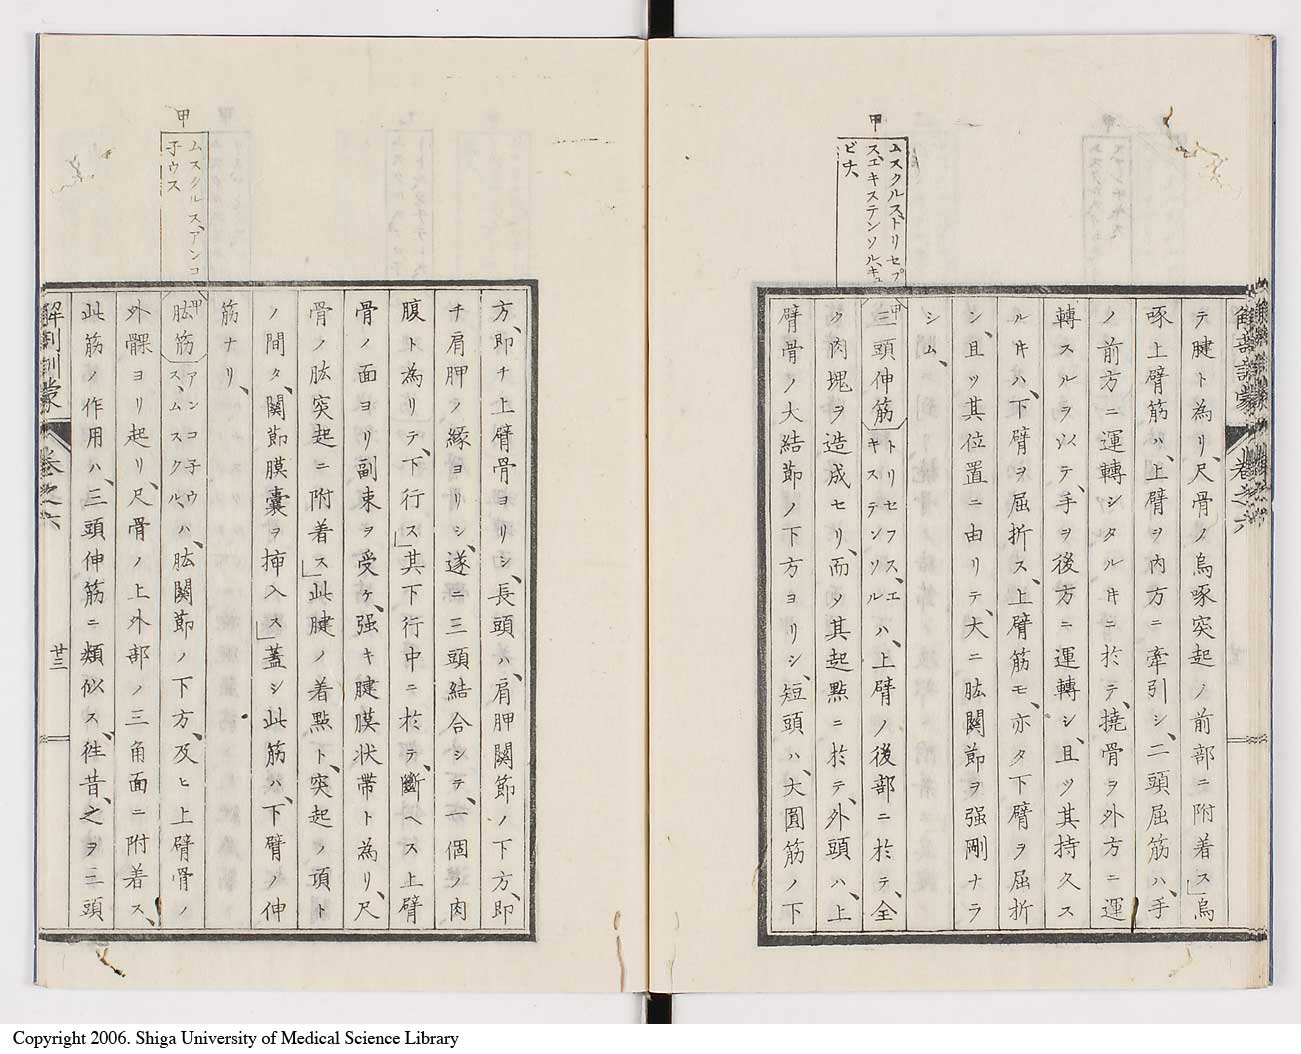 解剖訓蒙
卷之六
テ腱ト為リ、尺骨ノ烏啄突起ノ前部ニ附着ス」烏
啄上臂筋ハ、上臂ヲ内方ニ牽引シ、二頭屈筋ハ、手
ノ前方ニ運轉シタル𪜈ニ於テ、撓骨ヲ外方ニ運
轉スルヲ以テ、手ヲ後方ニ運轉シ、且ツ其持久ス
ル𪜈ハ、下臂ヲ屈折ス、上臂筋モ、亦タ下臂ヲ屈折
シ、且ツ其位置ニ由リテ、大ニ肱関節ヲ强剛ナラ
シム、
甲
ムスクルス、トリセプ
ス、エキステンソル、キュ
ビチ、
甲
三頭伸筋
トリセフス、エ
キステンソル
ハ、上臂ノ後部ニ於テ、全
ク肉塊ヲ造成セリ、而タ其起點ニ於テ、外頭ハ、上
臂骨ノ大結節ノ下方ヨリシ、短頭ハ、大圓筋ノ下
方、即チ上臂骨ヨリシ、長頭ハ、肩胛関節ノ下方、即
チ肩胛ノ縁ヨリシ、遂ニ三頭結合シテ、一個ノ肉
腹ト為リテ、下行ス」其下行中ニ於テ、斷ヘス上臂
骨ノ面ヨリ副束ヲ受ケ、强キ腱膜状帯ト為リ、尺
骨ノ肱突起ニ附着ス」此腱ノ着點ト、突起ノ頂ト
ノ間タ、関節膜囊ヲ挿入ス」蓋シ此筋ハ、下臂ノ伸
筋ナリ、
甲
ムスクルス、アンコ
子ウス
甲
肱筋
アンコ子ウ
ス、ムスクル
ハ、肱関節ノ下方、及ヒ上臂骨ノ
外髁ヨリ起リ、尺骨ノ上外部ノ三角面ニ附着ス、
此筋ノ作用ハ、三頭伸筋ニ類似ス、徃昔、之ヲ三頭
解剖訓蒙
卷之六
廿三
Copyright 2006. Shiga University of Medical Science Library